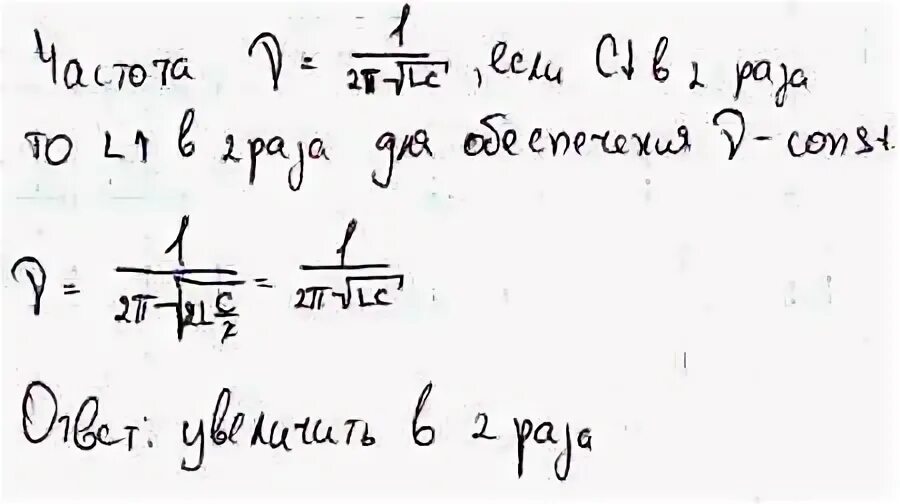 Частота ν = 1/(2π√LC), если C↓ в 2 раза
то L↑ в 2 раза для обеспечения ν - const.
ν = 1/(2π√(2L C/2)) = 1/(2π√LC)
Ответ: увеличить в 2 раза